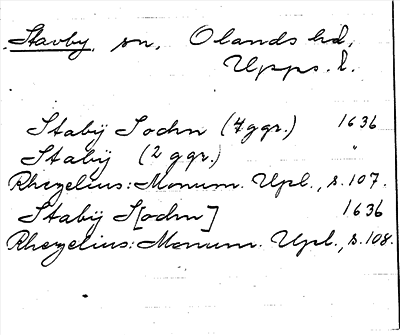 Stavby, sn, Olands hd,
Upps. l.
Stabÿ Sochn (7 ggr.) 1636
Stabÿ (2 ggr.) "
Rhezelius: Monum. Upl., s. 107.
Stabÿ S[ochn] 1636
Rhezelius: Monum. Upl., s. 108.